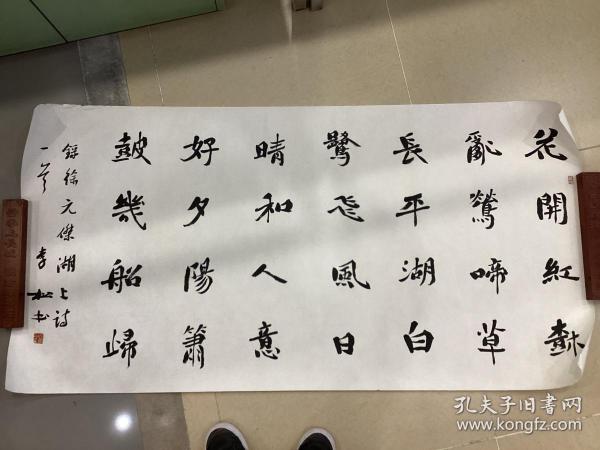 花開紅樹
亂鶯啼草
長平湖白
鷺飛風日
晴和人意
好夕陽簫
皷幾船歸
錄徐元傑湖上詩
一首 李松书
孔夫子旧书网
www.kongfz.com